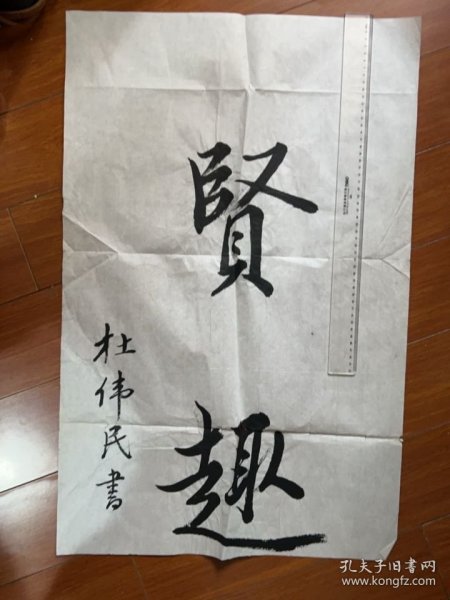 賢趣
杜伟民書
孔夫子旧書网
www.kongfz.com